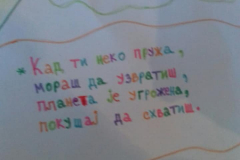 * Кад ти неко пружа,
мораш да узвратиш,
планета је угрожена,
покушај да схватиш.